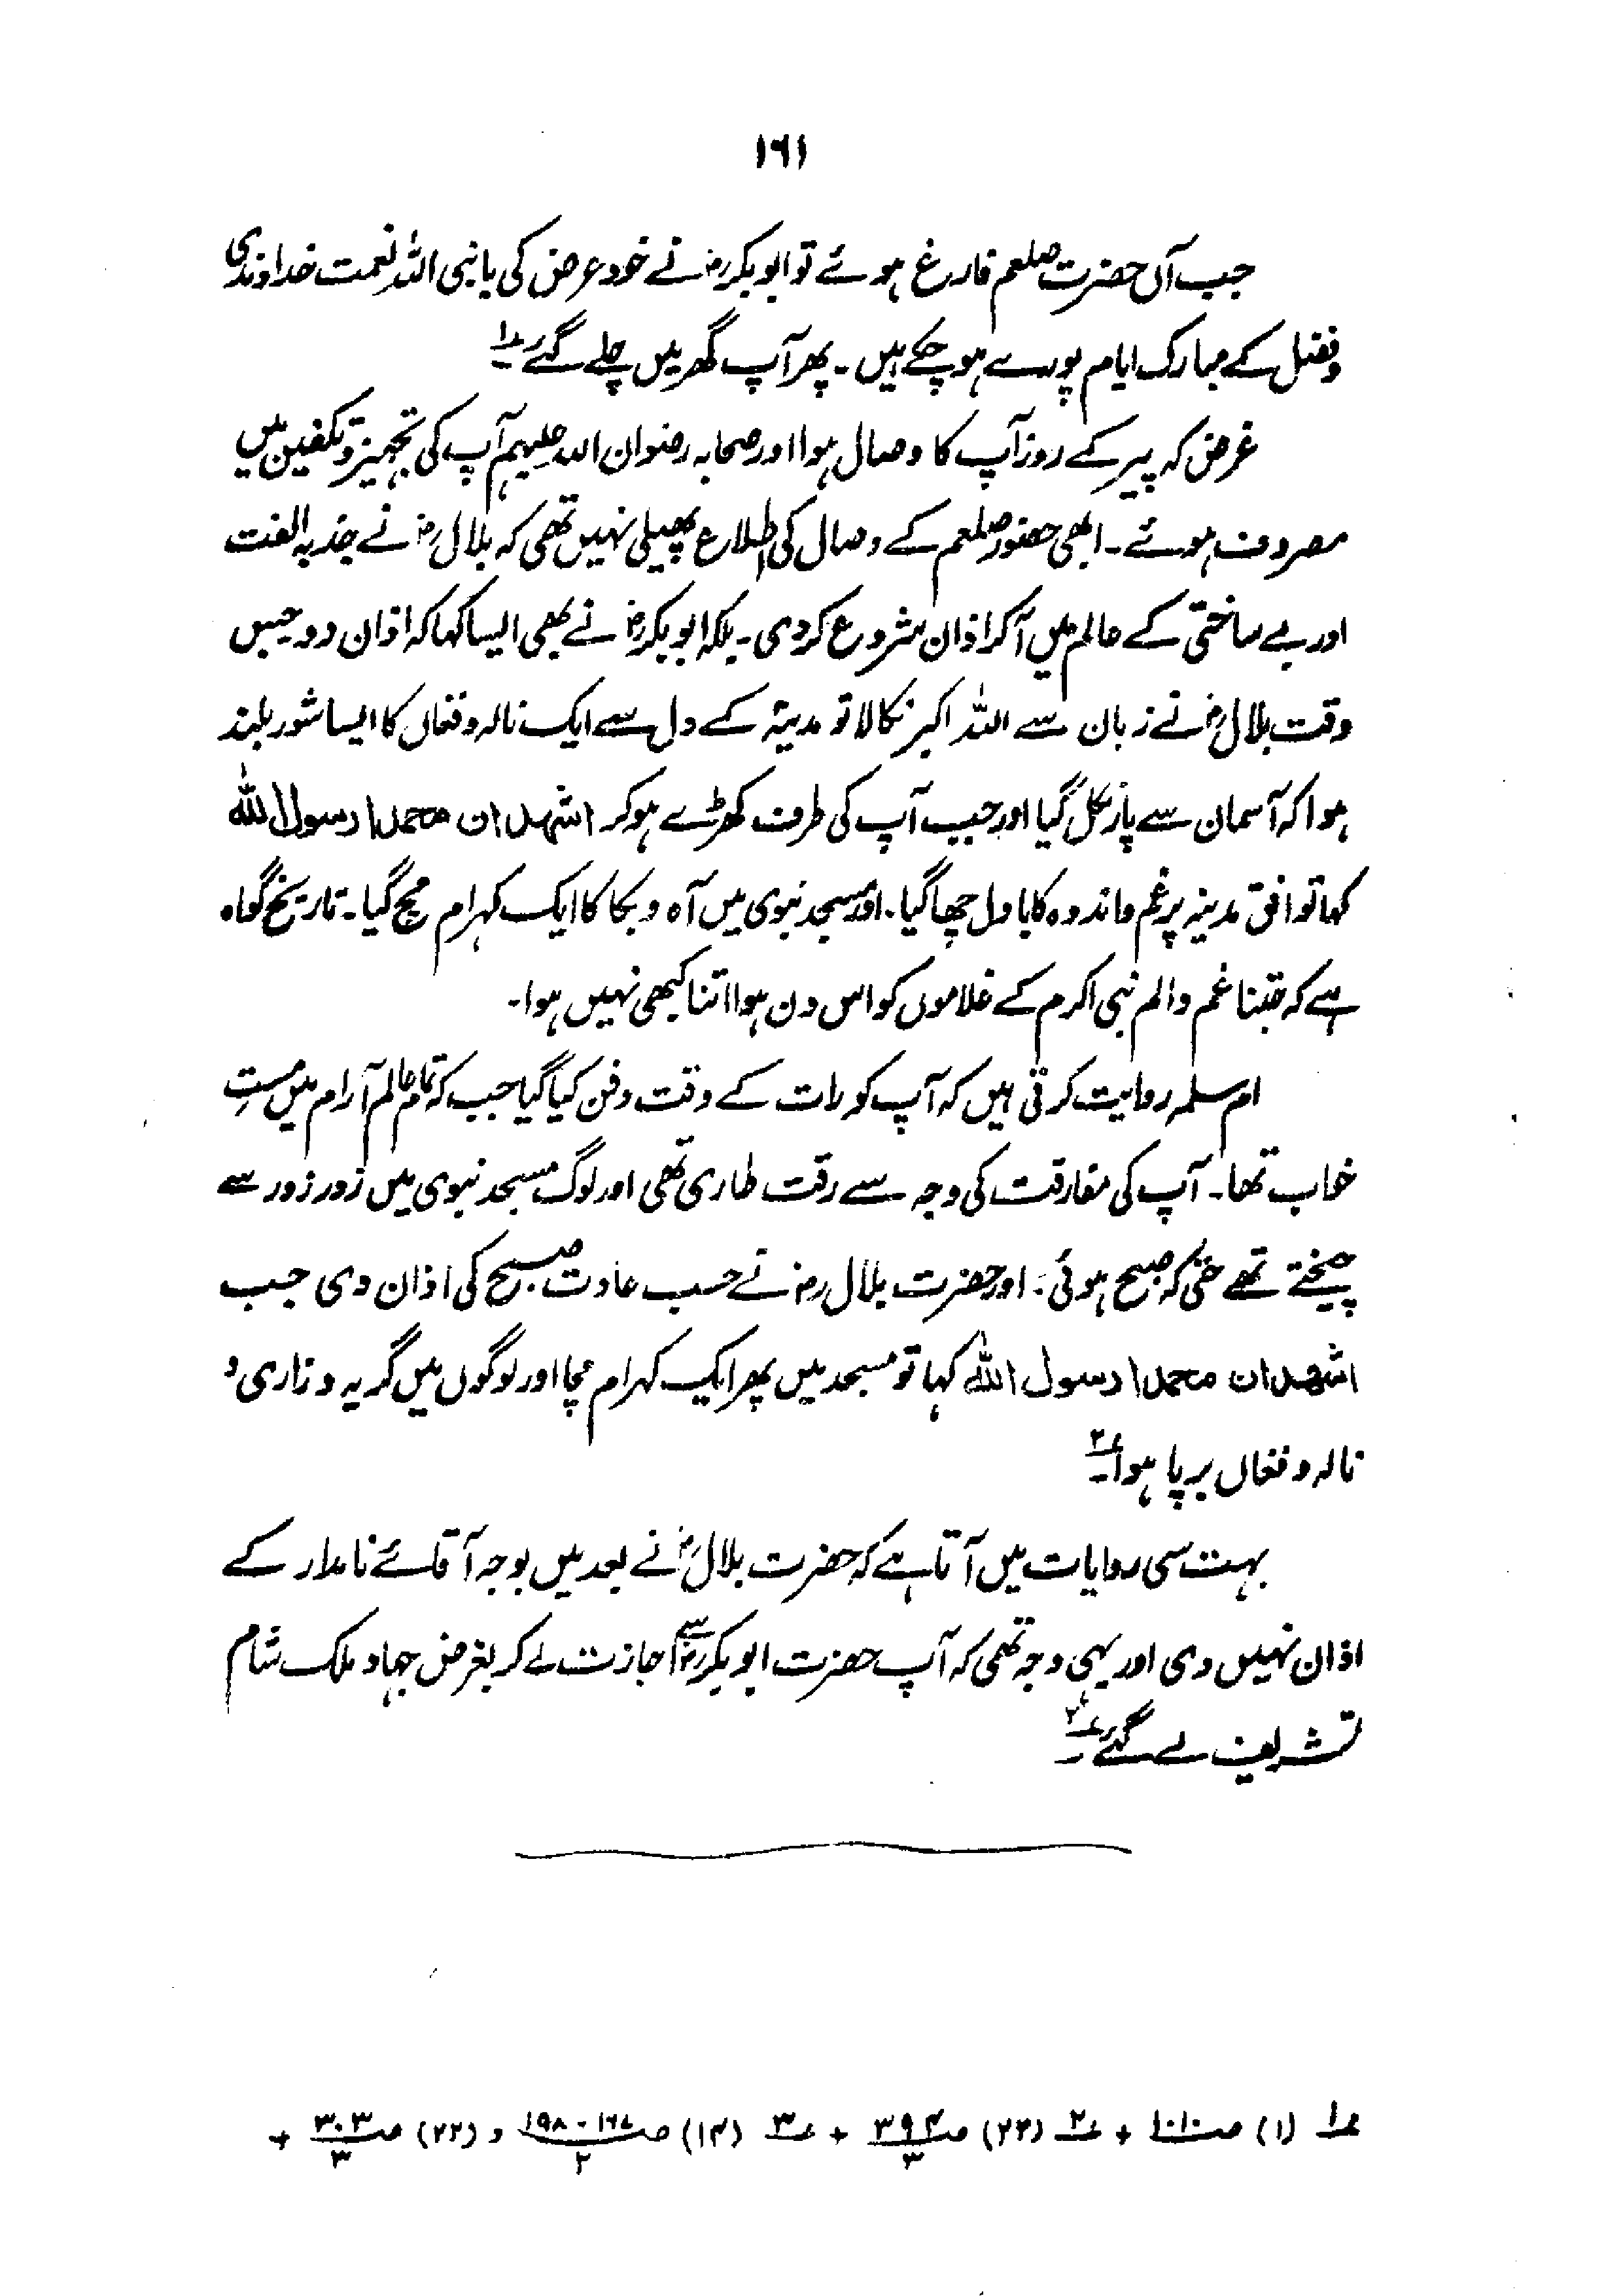 ۱۶۱
جب آں حضرت صلعم فارغ ہوئے تو ابوبکر رض نے خود عرض کی یا نبی اللہ نعمت خداوندی
وفضل کے مبارک ایام پورے ہو چکے ہیں۔ پھر آپ گھر میں چلے گئے ؏۱
غرض کہ پیر کے روز آپ کا وصال ہوا اور صحابہ رضوان اللہ علیہم آپ کی تجہیز و تکفین میں
مصروف ہوئے۔ ابھی حضور صلعم کے وصال کی اطلاع پھیلی نہیں تھی کہ بلال رض نے جذبہ الفت
اور بے ساختی کے عالم میں آکر اذان شروع کر دی۔ بلکہ ابوبکر رض نے بھی ایسا کہا کہ اذان دو جس
وقت بلال رض نے زبان سے اللہ اکبر نکالا تو مدینہ کے دل سے ایک نالہ و فغاں کا ایسا شور بلند
ہوا کہ آسمان سے پار نکل گیا اور جب آپ کی طرف کھڑے ہو کر اشہد ان محمدا رسول اللہ
کہا تو افق مدینہ پر غم و اندوہ کا بادل چھا گیا۔ اور مسجد نبوی میں آہ و بکا کا ایک کہرام مچ گیا۔ تاریخ گواہ
ہے کہ جتنا غم و الم نبی اکرم کے غلاموں کو اس دن ہوا اتنا کبھی نہیں ہوا۔
ام سلمہ روایت کرتی ہیں کہ آپ کو رات کے وقت دفن کیا گیا جب کہ تمام عالم آرام میں مستِ
خواب تھا۔ آپ کی مفارقت کی وجہ سے رقت طاری تھی اور لوگ مسجد نبوی میں زور زور سے
چیختے تھے حتیٰ کہ صبح ہوئی۔ اور حضرت بلال رض نے حسب عادت صبح کی اذان دی جب
اشہد ان محمدا رسول اللہ کہا تو مسجد میں پھر ایک کہرام مچا اور لوگوں میں گریہ و زاری و
نالہ و فغاں برپا ہوا۔ ؏۲
بہت سی روایات میں آتا ہے کہ حضرت بلال رض نے بعد میں بوجہ آقائے نامدار کے
اذان نہیں دی اور یہی وجہ تھی کہ آپ حضرت ابوبکر رض سے اجازت لے کر بغرض جہاد ملک شام
تشریف لے گئے۔
؏۱ (۱) صـ۱۰۱۰ + ؏۲ (۲۳) صـ۳۹۴/۳ + ؏۳ (۱۴) صـ۱۶۷-۱۹۸/۲ و (۲۲) صـ۳۰۳/۳ +